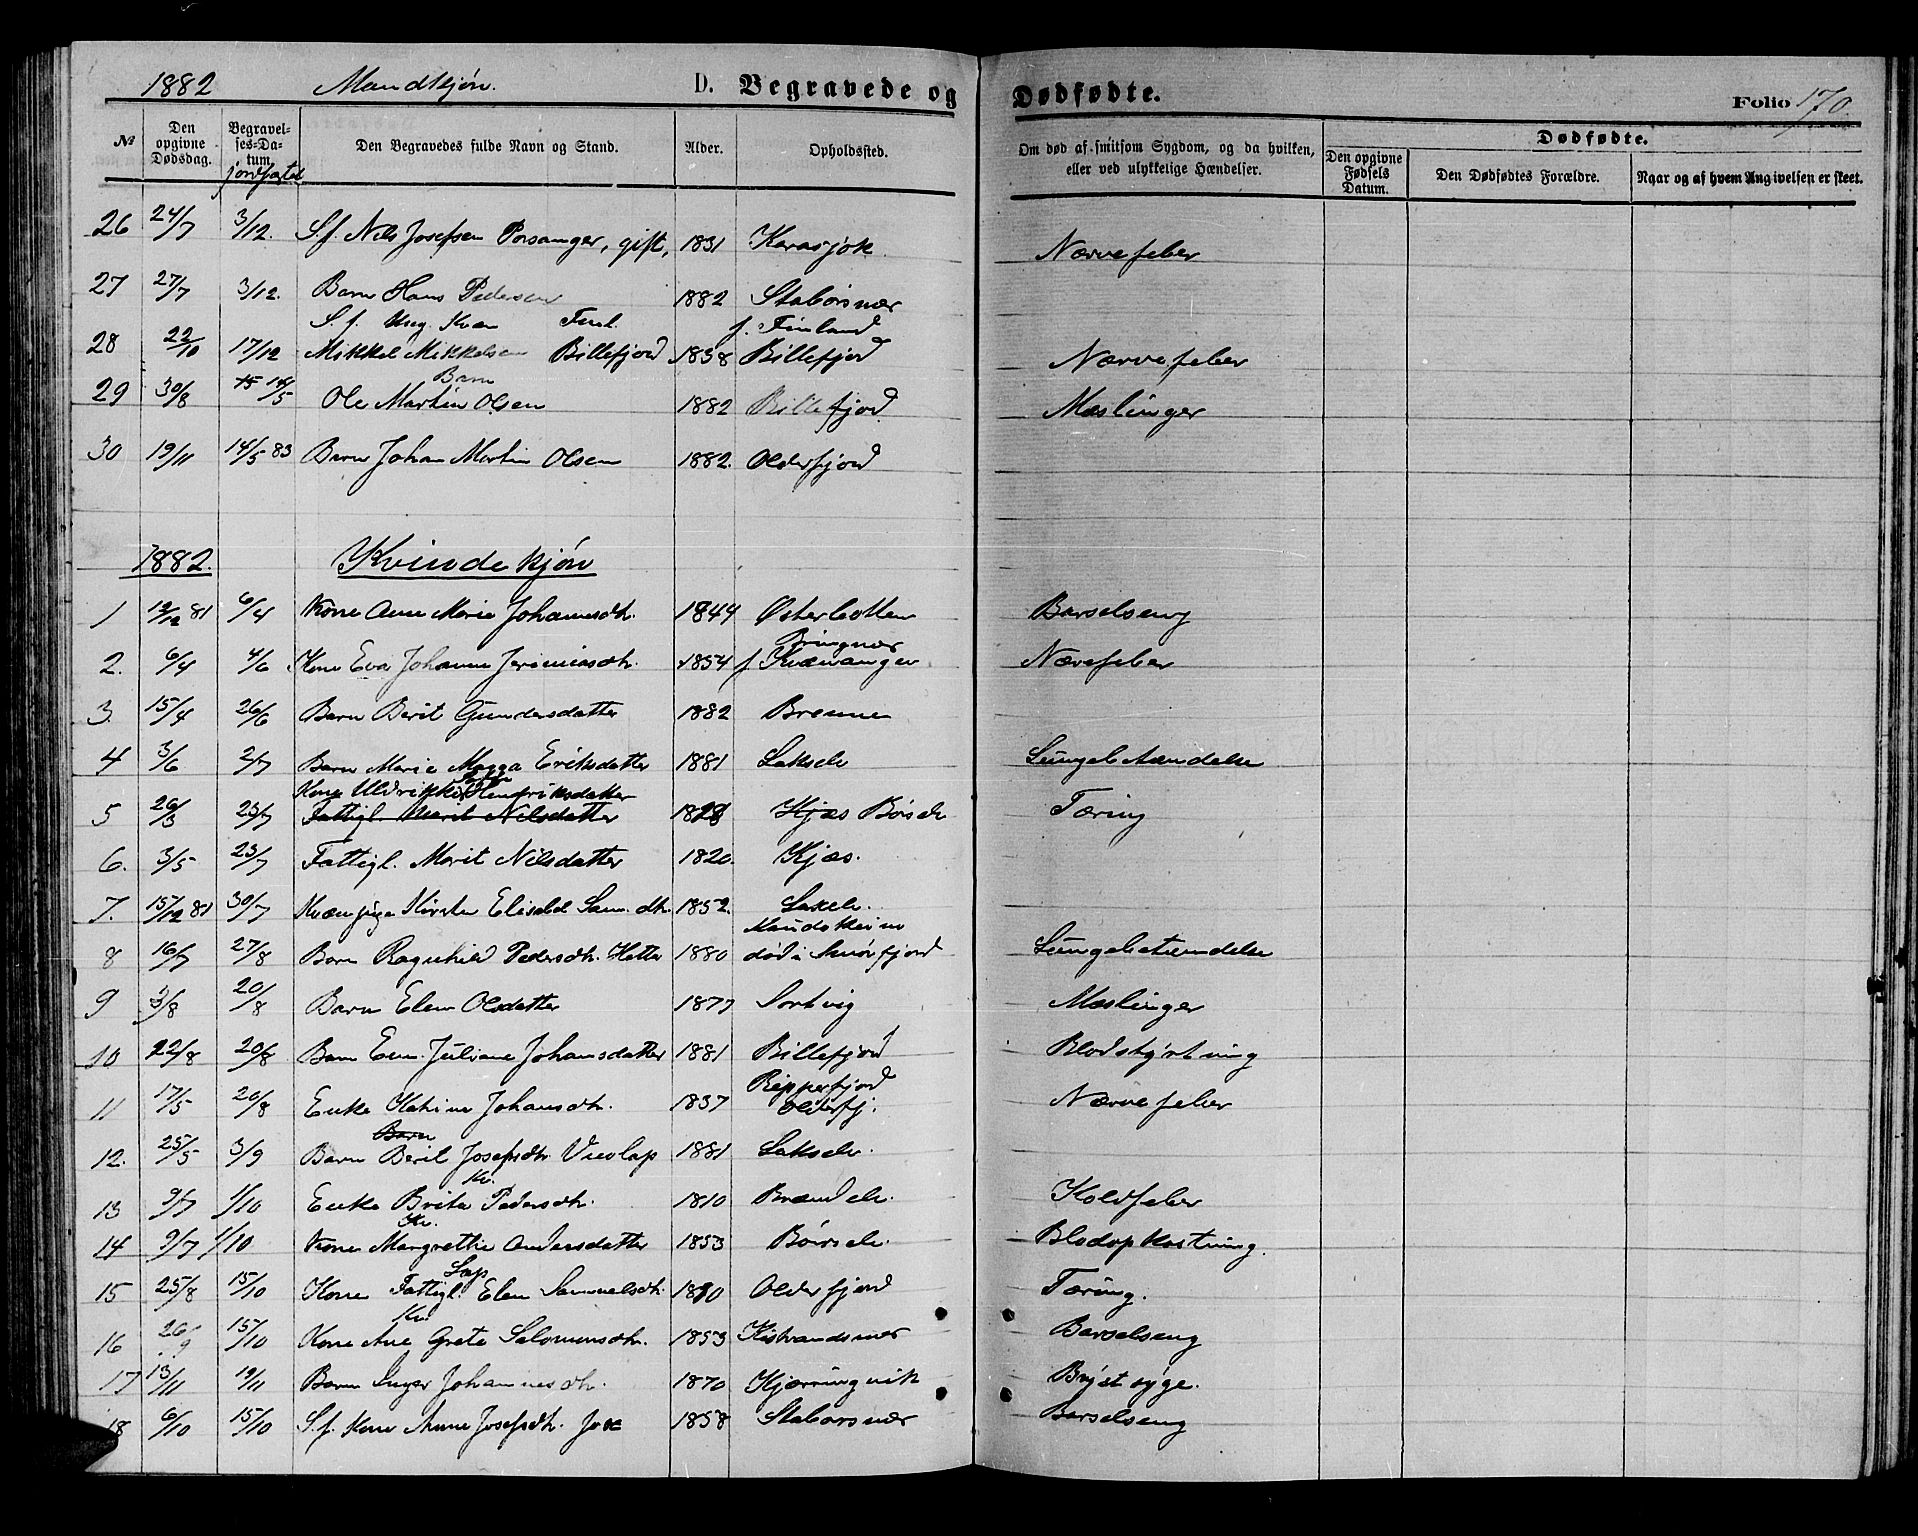 1882 Mandkjøn. D. Begravede og Dødfødte. Folio 170.
№ Den opgivne Dødsdag. Begravelses-Datum. jordfæstet Den Begravedes fulde Navn og Stand. Alder. Opholdssted. Om død af smitsom Sygdom, og da hvilken, eller ved ulykkelige Hændelser. Dødfødte. Den opgivne Fødsels Datum. Den Dødfødtes Forældre. Naar og af hvem Angivelsen er skeet.
26 24/7 3/12. S.f. Nils Josefsen Porsanger, gift, 1831 Karasjok Nærvefeber
27 27/7 3/12. Barn Hans Pedersen 1882 Stabørsnær
S. f. Ung. Kvæn Finl. f. Finland
28 22/10 17/12 Mikkel Mikkelsen Billefjord 1838 Billefjord Nærvefeber
Barn
29 30/8 15 14/5 Ole Martin Olsen 1882 Billefjord Mæslinger
30 19/11 14/5 83 Barn Johan Martin Olsen 1882. Olderfjord
1882. Kvindekjøn
1 12/12 81 6/4 Kone Ane Marie Johannesdtr. 1844 Østerbotten Barselseng
Bringnær
2. 6/4 4/6 Kone Eva Johanne Jeremiasdtr. 1854 f. Kvænangen Nærvefeber
3. 15/4 26/6 Barn Berit Gundersdatter 1882 Brenne
4 3/6 2/7 Barn Marie Magga Eriksdatter 1881 Lakselv Lungebetændelse
Kone Uldrikke Hendriksdatter
5 26/3 23/7 Fattigl. Marit Nilsdatter 1828 Kjæs Børselv Tæring
6. 3/5 23/7 Fattigl. Marit Nilsdatter 1820. Kjæs.
7. 15/12 81 30/7 Kvænpige Kirsten Elisabt Sam. dtr. 1852. Lakselv.
Kautokeino
8 16/7 27/8 Barn Ragnhild Pedersdtr. Hætta 1880 død i Smørfjord Lungebetændelse
9 3/8 20/8 Barn Elen Olsdatter 1877 Sortvig Mæslinger
10 22/8 20/8 Barn Eva Juliane Johansdatter 1881 Billefjord Blodstyrtning
Ripperfjord
11 17/5 20/8 Enke Katrine Johansdtr. 1837 Olderfj. Nærvefeber
Barn
12. 25/5 3/9 Barn Berit Josefsdtr Vuolap 1881 Lakselv.
Kv.
13 9/7 1/10 Enke Brita Pedersdtr. 1810 Brændelv. Koldfeber
Kv.
14 9/7 1/10 Kone Margrethe Andersdatter 1853 Børselv. Blodopkastning.
Lap
15 25/8 15/10 Kone Fattigl. Elen Samuelsdtr. 1810 Olderfjord Tæring.
Kv.
16 26/9 15/10 Kone Ane Grete Salomonsdtr. 1853 Kistrandsnær Barselseng
17 13/11 19/11 Barn Inger Johannesdtr. 1870 Kjærringvik Brystsyge.
18 6/10 15/10 S. f. Kone Anne Josefsdtr. Jox 1858 Stabørsnær Barselseng